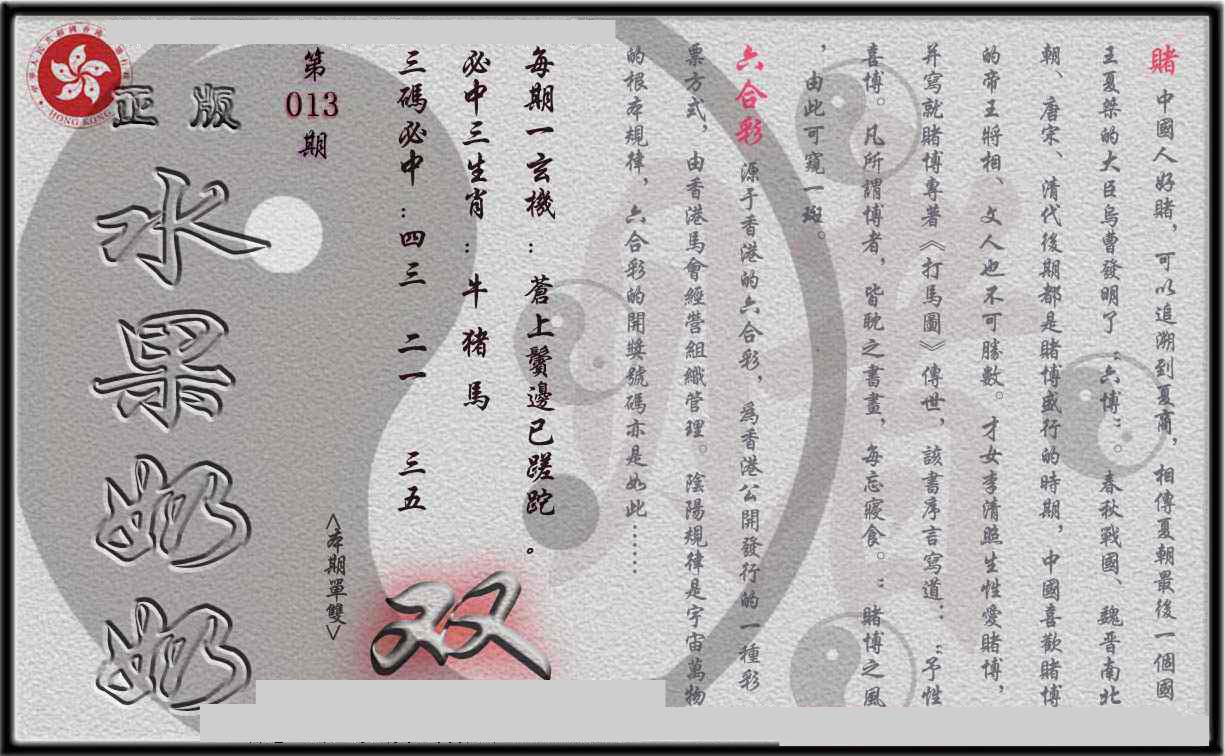 賭 中國人好賭，可以追溯到夏商，相傳夏朝最後一個國
王夏桀的大臣烏曹發明了“六博”。春秋戰國、魏晉南北
朝、唐宋、清代後期都是賭博盛行的時期，中國喜歡賭博
的帝王將相、文人也不可勝數。才女李清照生性愛賭博，
并寫就賭博專著《打馬圖》傳世，該書序言寫道：“予性
喜博。凡所謂博者，皆耽之書畫，每忘寢食。”賭博之風
，由此可窺一斑。
六合彩 源于香港的六合彩，為香港公開發行的一種彩
票方式，由香港馬會經營組織管理。陰陽規律是宇宙萬物
的根本規律，六合彩的開獎號碼亦是如此……
每期一玄機：蒼上鬢邊已蹉跎。
必中三生肖：牛 猪 馬
三碼必中：四三 二一 三五
<本期單雙>
双
第
013
期
正版
水果奶奶
HONG KONG